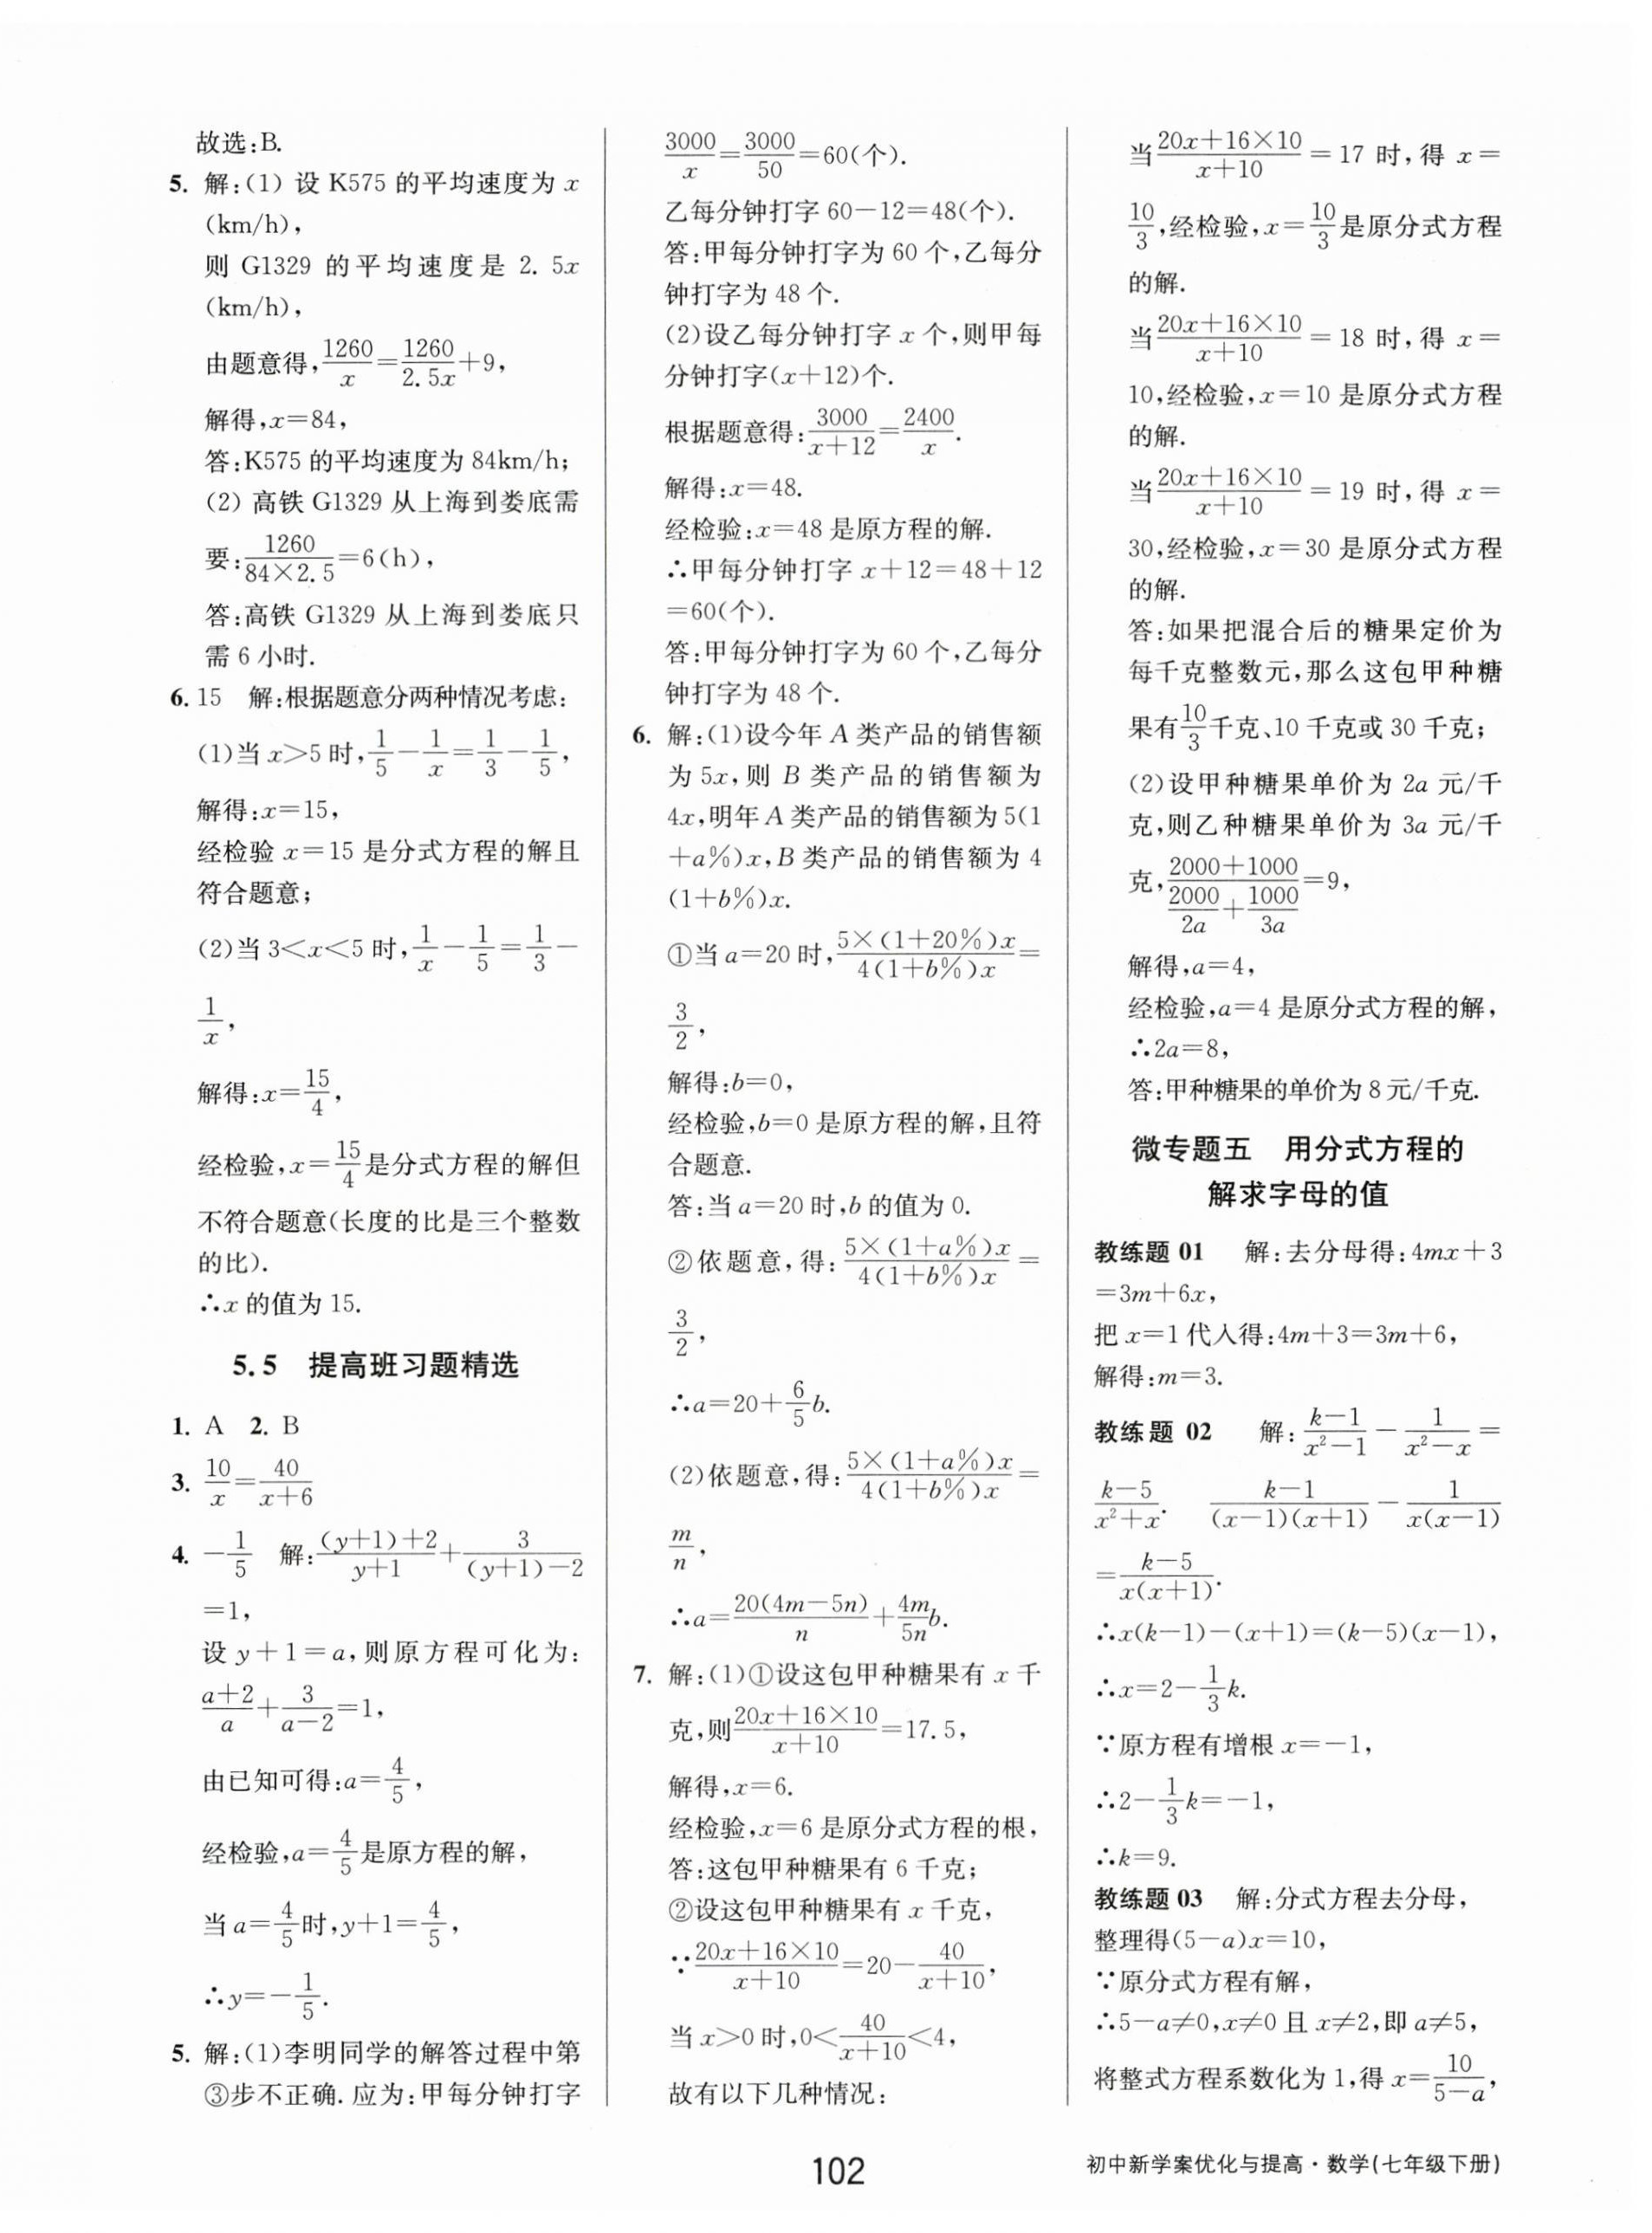 故选:B.
5. 解:(1) 设 K575 的平均速度为 x
(km/h),
则 G1329 的平均速度是 2.5x
(km/h),
由题意得,1260/x=1260/2.5x+9,
解得,x=84,
答:K575 的平均速度为 84km/h;
(2) 高铁 G1329 从上海到娄底需
要:1260/(84×2.5)=6(h),
答:高铁 G1329 从上海到娄底只
需 6 小时.
6. 15 解:根据题意分两种情况考虑:
(1)当 x>5 时,1/5-1/x=1/3-1/5,
解得:x=15,
经检验 x=15 是分式方程的解且
符合题意;
(2)当 3<x<5 时,1/x-1/5=1/3-
1/x,
解得:x=15/4,
经检验,x=15/4是分式方程的解但
不符合题意(长度的比是三个整数
的比).
∴x 的值为 15.
5.5 提高班习题精选
1. A 2. B
3. 10/x=40/(x+6)
4. -1/5 解:((y+1)+2)/(y+1)+3/((y+1)-2)
=1,
设 y+1=a,则原方程可化为:
(a+2)/a+3/(a-2)=1,
由已知可得:a=4/5,
经检验,a=4/5是原方程的解,
当 a=4/5时,y+1=4/5,
∴y=-1/5.
5. 解:(1)李明同学的解答过程中第
③步不正确. 应为:甲每分钟打字
3000/x=3000/50=60(个).
乙每分钟打字 60-12=48(个).
答:甲每分钟打字为 60 个,乙每分
钟打字为 48 个.
(2)设乙每分钟打字 x 个,则甲每
分钟打字(x+12)个.
根据题意得:3000/(x+12)=2400/x.
解得:x=48.
经检验:x=48 是原方程的解.
∴甲每分钟打字 x+12=48+12
=60(个).
答:甲每分钟打字为 60 个,乙每分
钟打字为 48 个.
6. 解:(1)设今年 A 类产品的销售额
为 5x,则 B 类产品的销售额为
4x,明年 A 类产品的销售额为 5(1
+a%)x,B 类产品的销售额为 4
(1+b%)x.
①当 a=20 时,5×(1+20%)x/4(1+b%)x=
3/2,
解得:b=0,
经检验,b=0 是原方程的解,且符
合题意.
答:当 a=20 时,b 的值为 0.
②依题意,得:5×(1+a%)x/4(1+b%)x=
3/2,
∴a=20+6/5b.
(2)依题意,得:5×(1+a%)x/4(1+b%)x=
m/n,
∴a=20(4m-5n)/n+4m/5n b.
7. 解:(1)①设这包甲种糖果有 x 千
克,则(20x+16×10)/(x+10)=17.5,
解得,x=6.
经检验,x=6 是原分式方程的根,
答:这包甲种糖果有 6 千克;
②设这包甲种糖果有 x 千克,
∵(20x+16×10)/(x+10)=20-40/(x+10),
当 x>0 时,0<40/(x+10)<4,
故有以下几种情况:
当(20x+16×10)/(x+10)=17 时,得 x=
10/3,经检验,x=10/3是原分式方程
的解.
当(20x+16×10)/(x+10)=18 时,得 x=
10,经检验,x=10 是原分式方程
的解.
当(20x+16×10)/(x+10)=19 时,得 x=
30,经检验,x=30 是原分式方程
的解.
答:如果把混合后的糖果定价为
每千克整数元,那么这包甲种糖
果有10/3千克、10 千克或 30 千克;
(2)设甲种糖果单价为 2a 元/千
克,则乙种糖果单价为 3a 元/千
克,(2000+1000)/(2000/2a+1000/3a)=9,
解得,a=4,
经检验,a=4 是原分式方程的解,
∴2a=8,
答:甲种糖果的单价为 8 元/千克.
微专题五 用分式方程的
解求字母的值
教练题 01 解:去分母得:4mx+3
=3m+6x,
把 x=1 代入得:4m+3=3m+6,
解得:m=3.
教练题 02 解:(k-1)/(x²-1)-1/(x²-x)=
(k-5)/(x²+x). (k-1)/((x-1)(x+1))-1/(x(x-1))
=(k-5)/(x(x+1)).
∴x(k-1)-(x+1)=(k-5)(x-1),
∴x=2-1/3k.
∵原方程有增根 x=-1,
∴2-1/3k=-1,
∴k=9.
教练题 03 解:分式方程去分母,
整理得(5-a)x=10,
∵原分式方程有解,
∴5-a≠0,x≠0 且 x≠2,即 a≠5,
将整式方程系数化为 1,得 x=10/(5-a),
102
初中新学案优化与提高·数学(七年级下册)